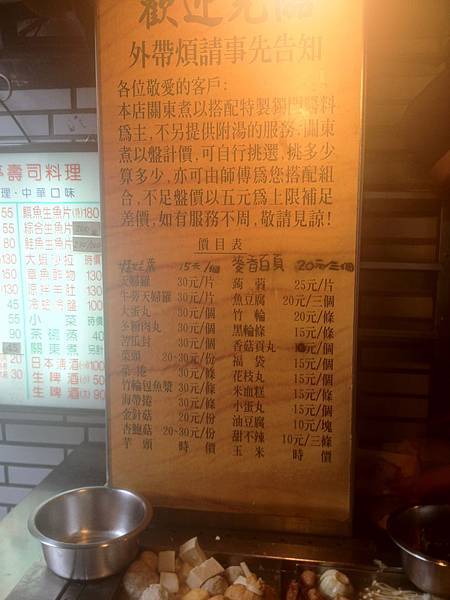 歡迎光臨
外帶煩請事先告知
各位敬愛的客戶:
本店關東煮以搭配特製獨門醬料
為主,不另提供附湯的服務,關東
煮以盤計價,可自行挑選,挑多少
算多少,亦可由師傅為您搭配組
合,不足盤價以五元為上限補足
差價,如有服務不周,敬請見諒!
價目表
15元/個
20元/三個
天婦羅 30元/片
蒟蒻 25元/片
牛蒡天婦羅 30元/片
魚豆腐 20元/三個
大蛋丸 30元/個
竹輪 20元/條
多鄉肉丸 30元/個
黑輪條 15元/條
苦瓜封 30元/個
香菇貢丸 元/個
菜頭 20-30元/份
福袋 15元/個
菜捲 30元/條
花枝丸 15元/個
竹輪包魚漿 30元/條
米血糕 15元/個
海帶捲 30元/條
小蛋丸 15元/個
金針菇 20元/份
油豆腐 10元/塊
杏鮑菇 20-30元/份
甜不辣 10元/三條
芋頭 時價
玉米 時價
壽司料理
理·中華口味
55 鯛魚生魚片 180
55 綜合生魚片
80 鮭魚生魚片
130 大蝦沙拉 時價
150 章魚軟物 130
100 涼拌羊肚 130
45 冷蛤蛤盤 100
55 小菜 時價
90 茶碗蒸 40
45 關東煮 另計
20 日本清酒 100
30 生啤酒(大) 90
生啤酒 50